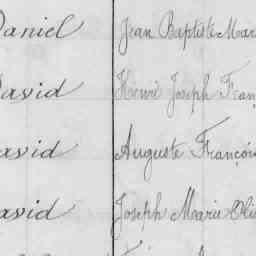 Daniel Jean Baptiste Mari
David Henri Joseph Fran
David Auguste Françoi
David Joseph Marie Oli